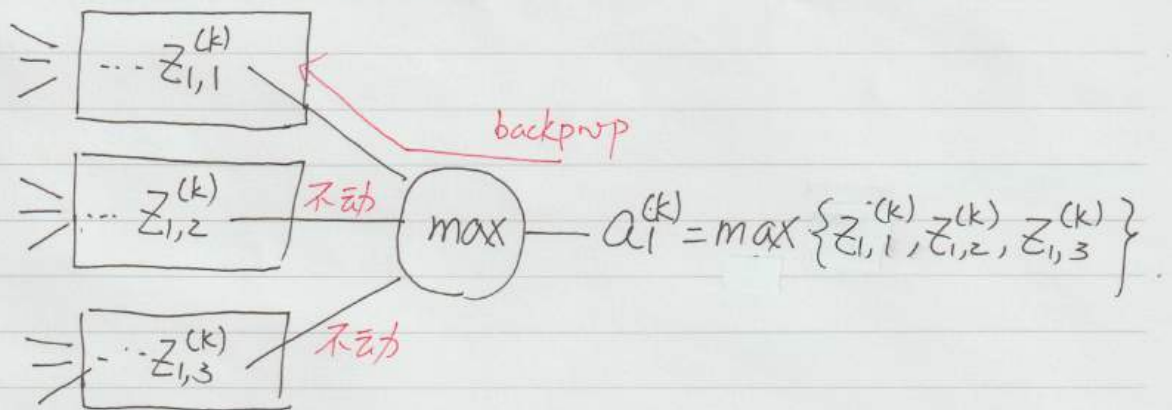 ... Z_{1,1}^{(k)}
backprop
... Z_{1,2}^{(k)}
不动
max
a_1^{(k)} = max {Z_{1,1}^{(k)}, Z_{1,2}^{(k)}, Z_{1,3}^{(k)}}
... Z_{1,3}^{(k)}
不动